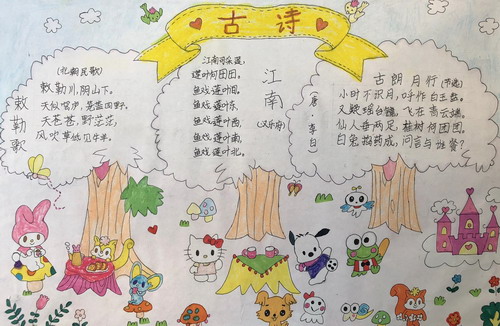 古诗
敕勒歌
(北朝民歌)
敕勒川,阴山下。
天似穹庐,笼盖四野。
天苍苍,野茫茫,
风吹草低见牛羊。
江南
(汉乐府)
江南可采莲,
莲叶何田田。
鱼戏莲叶间。
鱼戏莲叶东,
鱼戏莲叶西,
鱼戏莲叶南,
鱼戏莲叶北。
古朗月行(节选)
(唐·李白)
小时不识月,呼作白玉盘。
又疑瑶台镜,飞在青云端。
仙人垂两足,桂树何团团。
白兔捣药成,问言与谁餐?